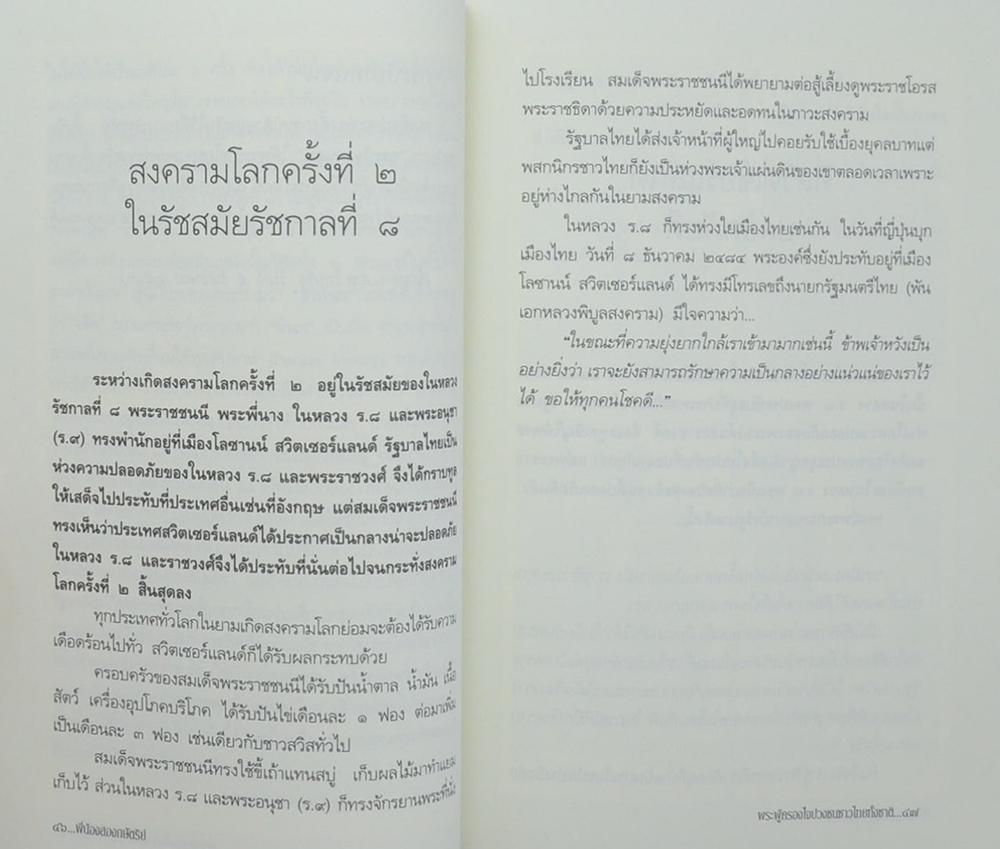 สงครามโลกครั้งที่ ๒
ในรัชสมัยรัชกาลที่ ๘
ระหว่างเกิดสงครามโลกครั้งที่ ๒ อยู่ในรัชสมัยของในหลวง
รัชกาลที่ ๘ พระราชชนนี พระพี่นาง ในหลวง ร.๘ และพระอนุชา
(ร.๙) ทรงพำนักอยู่ที่เมืองโลซานน์ สวิตเซอร์แลนด์ รัฐบาลไทยเป็น
ห่วงความปลอดภัยของในหลวง ร.๘ และพระราชวงศ์ จึงได้กราบทูล
ให้เสด็จไปประทับที่ประเทศอื่นเช่นที่อังกฤษ แต่สมเด็จพระราชชนนี
ทรงเห็นว่าประเทศสวิตเซอร์แลนด์ได้ประกาศเป็นกลางน่าจะปลอดภัย
ในหลวง ร.๘ และราชวงศ์จึงได้ประทับที่นั่นต่อไปจนกระทั่งสงคราม
โลกครั้งที่ ๒ สิ้นสุดลง
ทุกประเทศทั่วโลกในยามเกิดสงครามโลกย่อมจะต้องได้รับความ
เดือดร้อนไปทั่ว สวิตเซอร์แลนด์ก็ได้รับผลกระทบด้วย
ครอบครัวของสมเด็จพระราชชนนีได้รับปันน้ำตาล น้ำมัน เนื้อ
สัตว์ เครื่องอุปโภคบริโภค ได้รับปันไข่เดือนละ ๑ ฟอง ต่อมาเพิ่ม
เป็นเดือนละ ๓ ฟอง เช่นเดียวกับชาวสวิสทั่วไป
สมเด็จพระราชชนนีทรงใช้ขี้เถ้าแทนสบู่ เก็บผลไม้มาทำแยม
เก็บไว้ ส่วนในหลวง ร.๘ และพระอนุชา (ร.๙) ก็ทรงจักรยานพระที่นั่ง
๔๖...พี่น้องสองกษัตริย์
ไปโรงเรียน สมเด็จพระราชชนนีได้พยายามต่อสู้เลี้ยงดูพระราชโอรส
พระราชธิดาด้วยความประหยัดและอดทนในภาวะสงคราม
รัฐบาลไทยได้ส่งเจ้าหน้าที่ผู้ใหญ่ไปคอยรับใช้เบื้องยุคลบาทแต่
พสกนิกรชาวไทยก็ยังเป็นห่วงพระเจ้าแผ่นดินของเขาตลอดเวลาเพราะ
อยู่ห่างไกลกันในยามสงคราม
ในหลวง ร.๘ ก็ทรงห่วงใยเมืองไทยเช่นกัน ในวันที่ญี่ปุ่นบุก
เมืองไทย วันที่ ๘ ธันวาคม ๒๔๘๔ พระองค์ซึ่งยังประทับอยู่ที่เมือง
โลซานน์ สวิตเซอร์แลนด์ ได้ทรงมีโทรเลขถึงนายกรัฐมนตรีไทย (พัน
เอกหลวงพิบูลสงคราม) มีใจความว่า...
"ในขณะที่ความยุ่งยากใกล้เราเข้ามามากเช่นนี้ ข้าพเจ้าหวังเป็น
อย่างยิ่งว่า เราจะยังสามารถรักษาความเป็นกลางอย่างแน่วแน่ของเราไว้
ได้ ขอให้ทุกคนโชคดี..."
พระผู้ครองใจปวงชนชาวไทยทั้งชาติ...๔๗